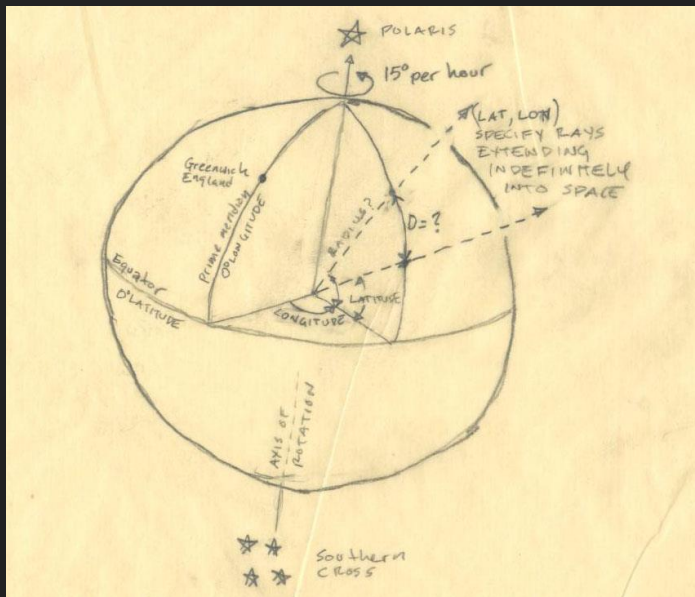 POLARIS
15° per hour
(LAT, LON)
SPECIFY RAYS
EXTENDING
INDEFINITELY
INTO SPACE
Greenwich
England
Prime meridion
0° LONGITUDE
RADIUS?
D=?
Equator
0° LATITUDE
LATITUDE
LONGITUDE
AXIS OF
ROTATION
Southern
CROSS